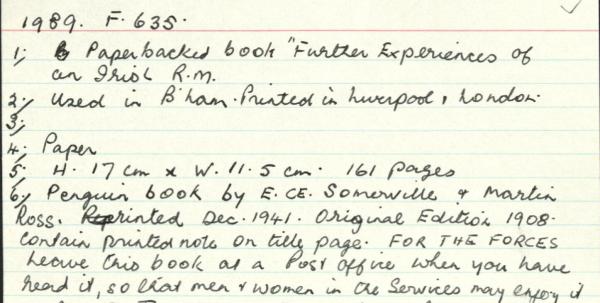 1989. F. 635.
1; Paperbacked book "Further Experiences of
an Irish R.M.
2; Used in B'ham. Printed in Liverpool & London.
3;
4; Paper
5; H. 17 cm x W. 11.5 cm. 161 pages
6; Penguin book by E. Œ. Somerville & Martin
Ross. Reprinted Dec. 1941. Original Edition 1908.
Contain printed note on title page. FOR THE FORCES
Leave this book at a Post office when you have
read it, so that men & women in the Services may enjoy it